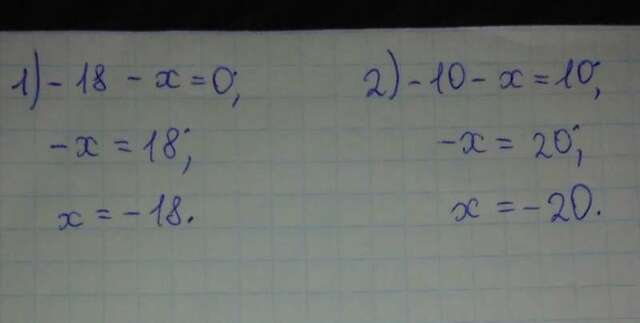 1) - 18 - x = 0;
- x = 18;
x = - 18.
2) - 10 - x = 10;
- x = 20;
x = - 20.